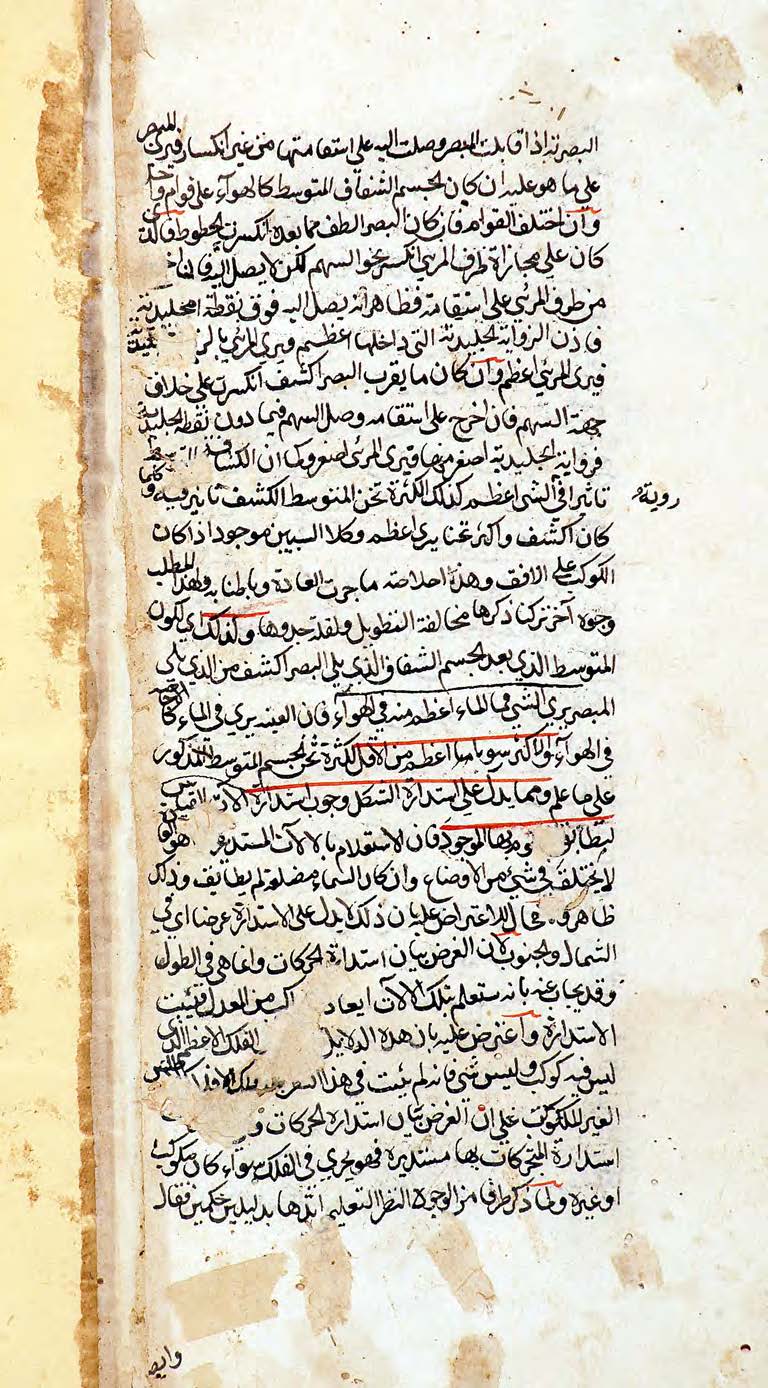 البصرية اذا قابلت المبصر وصلت اليه على استقامتها من غير انكسار فيرى المبصر
على ما هو عليه ان كان الجسم الشفاف المتوسط كالهواء على قوام واحد
وان اختلف القوام فان كان البصر الطف مما بعده انكسرت الخطوط فالذى
كان على محاراة طرف المرئي انكسر نحو السهم لكن لا يصل اليه
من طرف المرئي على استقامة فظاهر انه يصل اليه فوق نقطة الجليدية
فاذن الزواية الجليدية التى داخلها اعظم ويرى المرئي بالزا
فيرى المرئي اعظم وان كان ما يقرب البصر اكشف انكسرت على خلاف
جهة السهم فان اخرج على استقامة وصل السهم فيما دون نقطة الجليدية
فزواية الجليدية اصغر منها فيرى المرئي اصغر وكما ان الكشافة
تاثيرا في الشى اعظم كذلك لكثرة ثخن المتوسط الكشف تاثير فيه وكلما
رويه
كان اكشف واكثر ثخنا يرى اعظم وكلا السببين موجود اذا كان
الكوكب على الافق وهذا خلاصة ما جرت العادة وباطنا به ولهذا المطلب
وجوه آخر تركنا ذكرها مخالفة التطويل ولقلة جدوها ولذلك اى لكون
المتوسط الذى بعد الجسم الشفاف الذي يلي البصر اكشف من الذي يلي
المبصر يرى الشي في الماء اعظم منه في الهواء فان العنبه يرى في الماء كالاجاصه
في الهواء والاكثر سوبا اعظم من الاقل لكثرة ثخن الجسم المتوسط المذكور
على ما علم ومما يدل على استدارة الشكل وجوب استدارة الات
لتطابق الموجود فان الاستعلام بالالات المستديرة هو
لا يختلف في شيء من الاوضاع وان كان السماء مضلعة لم يطابق وذلك
ظاهر و محال للاعتراض عليه بان ذلك لا يدل على الاستدارة عرضا اي في
الشمال والجنوب لان الغرض بيان استدارة الحركات وانما هي في الطول
وقد يجاب عنه بانه ستعلم بتلك الالات ابعاد من المعدل فيثبت
الاستدارة واعترض عليه بان هذه الدلايل الفلك الاعظم الذى
ليس فيه كوكب وليس شي فانه لم يثبت في هذا
الغير المكوكب على ان الغرض بيان استدارة الحركات و
استدارة المتحركات بها مستديرة فهو يجري في الفلك سواء كان مكوكبا
او غيره ولما ذكر طرفا من الوجوه النظر التعليم ايدها بدليلين حكمين فقال
وايه